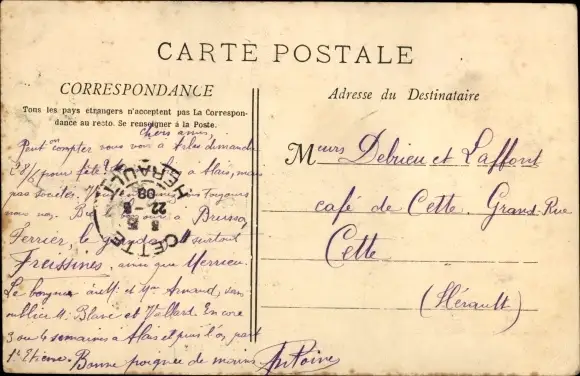 CARTE POSTALE
CORRESPONDANCE
Tous les pays étrangers n'acceptent pas La Correspon-
dance au recto. Se renseigner à la Poste.
Chers amis,
Peut on compter vous voir à Arles dimanche
28/6 pour fête? à Alais, mais
pas sociétés. toujours
Brusso,
Ferrier, le surtout
Freissines, ainsi que Merrieu.
Le bonjour à M. et Mme Arnaud, sans
oublier M. Blanc et Vallard. Encore
3 ou 4 semaines à Alais et puis l'on part
St Etienne. Bonne poignée de mains
Antoine
CETTE
HERAULT
22-6
08
Adresse du Destinataire
Meurs Debrieu et Laffont
café de Cette. Grand-Rue
Cette
(Hérault)